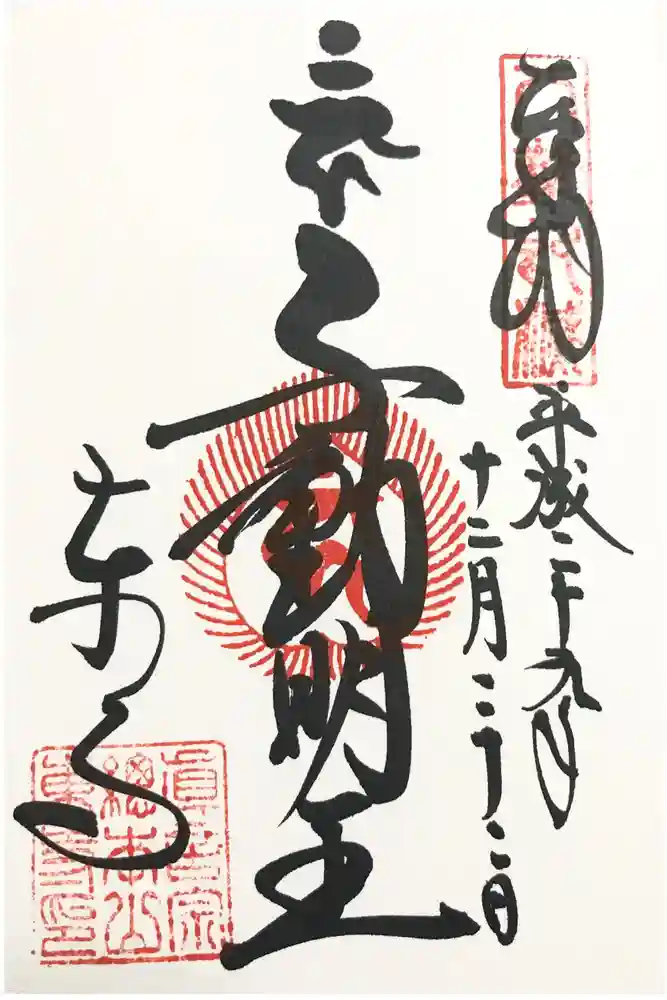 奉拝
平成二十九年
十二月二十二日
不動明王
東寺
眞言宗
總本山
東寺印